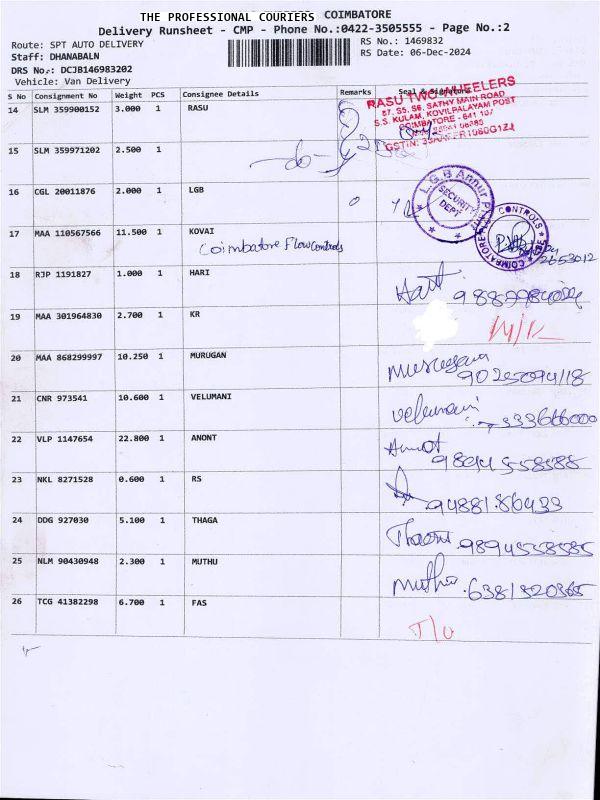 THE PROFESSIONAL COURIERS COIMBATORE
Delivery Runsheet - CMP - Phone No.:0422-3505555 - Page No.:2
Route: SPT AUTO DELIVERY
RS No.: 1469832
Staff: DHANABALN
RS Date: 06-Dec-2024
DRS No.: DCJB146983202
Vehicle: Van Delivery
S No Consignment No Weight PCS Consignee Details Remarks Seal & Signature
14 SLM 359900152 3.000 1 RASU
RASU TWO WHEELERS
S.S. KULAM, KOVILPALAYAM POST
COIMBATORE - 641 107
15 SLM 359971202 2.500 1
-do-
16 CGL 20011876 2.000 1 LGB
L.G.B Annur Plant
SECURITY
DEPT
17 MAA 110567566 11.500 1 KOVAI
Coimbatore Flow Controls
COIMBATORE FLOW CONTROLS
2653012
18 RJP 1191827 1.000 1 HARI
Hari
19 MAA 301964830 2.700 1 KR
20 MAA 868299997 10.250 1 MURUGAN
Murugan
21 CNR 973541 10.600 1 VELUMANI
Velumani
22 VLP 1147654 22.800 1 ANONT
23 NKL 8271528 0.600 1 RS
24 DDG 927030 5.100 1 THAGA
25 NLM 90430948 2.300 1 MUTHU
Muthu 6381520365
26 TCG 41382298 6.700 1 FAS